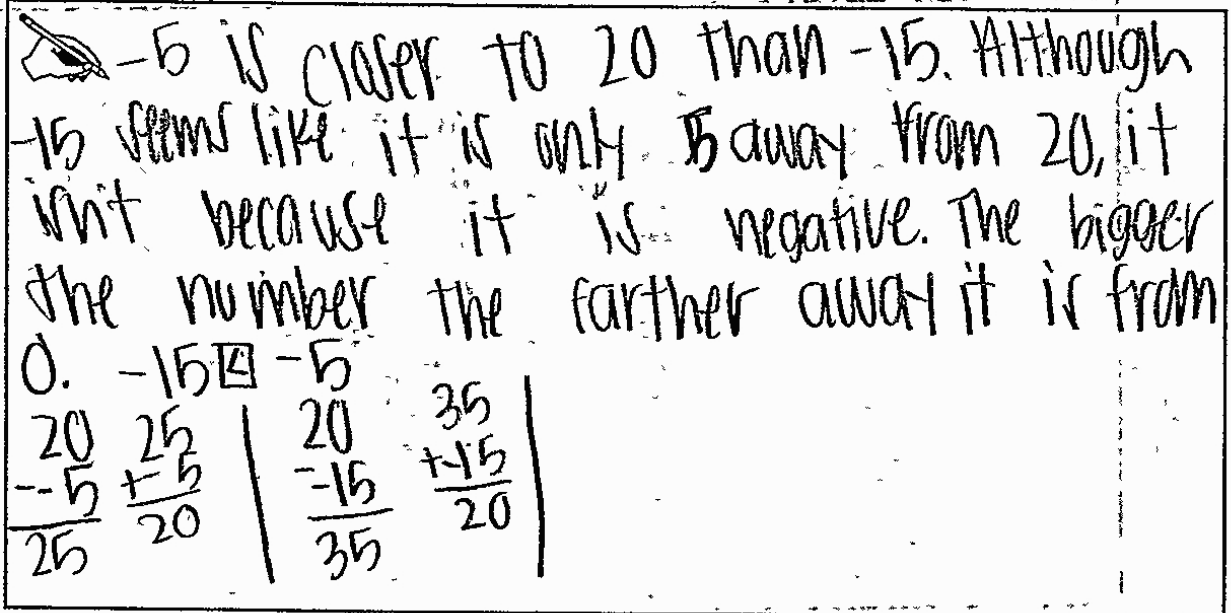 -5 is closer to 20 than -15. Although
-15 seems like it is only 5 away from 20, it
isn't because it is negative. The bigger
the number the farther away it is from
0. -15 < -5
20 25 20 35
--5 +-5 --15 +-15
25 20 35 20